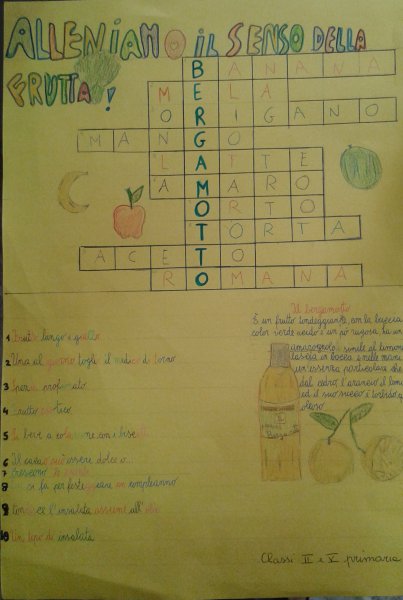 ALLENIAMO iL SENSO DELLA
FRUTTA!
BANANA
MELA
ORIGANO
MANGO
LATTE
AMARO
ORTO
TORTA
ACETO
ROMANA
1 frutto lungo e giallo
2 Una al giorno toglie il medico di torno
3 profumato
4 frutto esotico
5 Si beve a colazione con i biscotti
6 Il cacao può essere dolce o...
7 Crescono le
8 si fa per festeggiare un compleanno
9 condisce l'insalata assieme all'olio
10 Un tipo di insalata
Il bergamotto
È un frutto tondeggiante, con la buccia
color verde acido e un po' rugosa, ha un
simile al limone
lascia in bocca e nelle mani
un essenza particolare che
dal cedro, l'arancio, il
ed il suo succo è torbido e
Classi II e V primaria